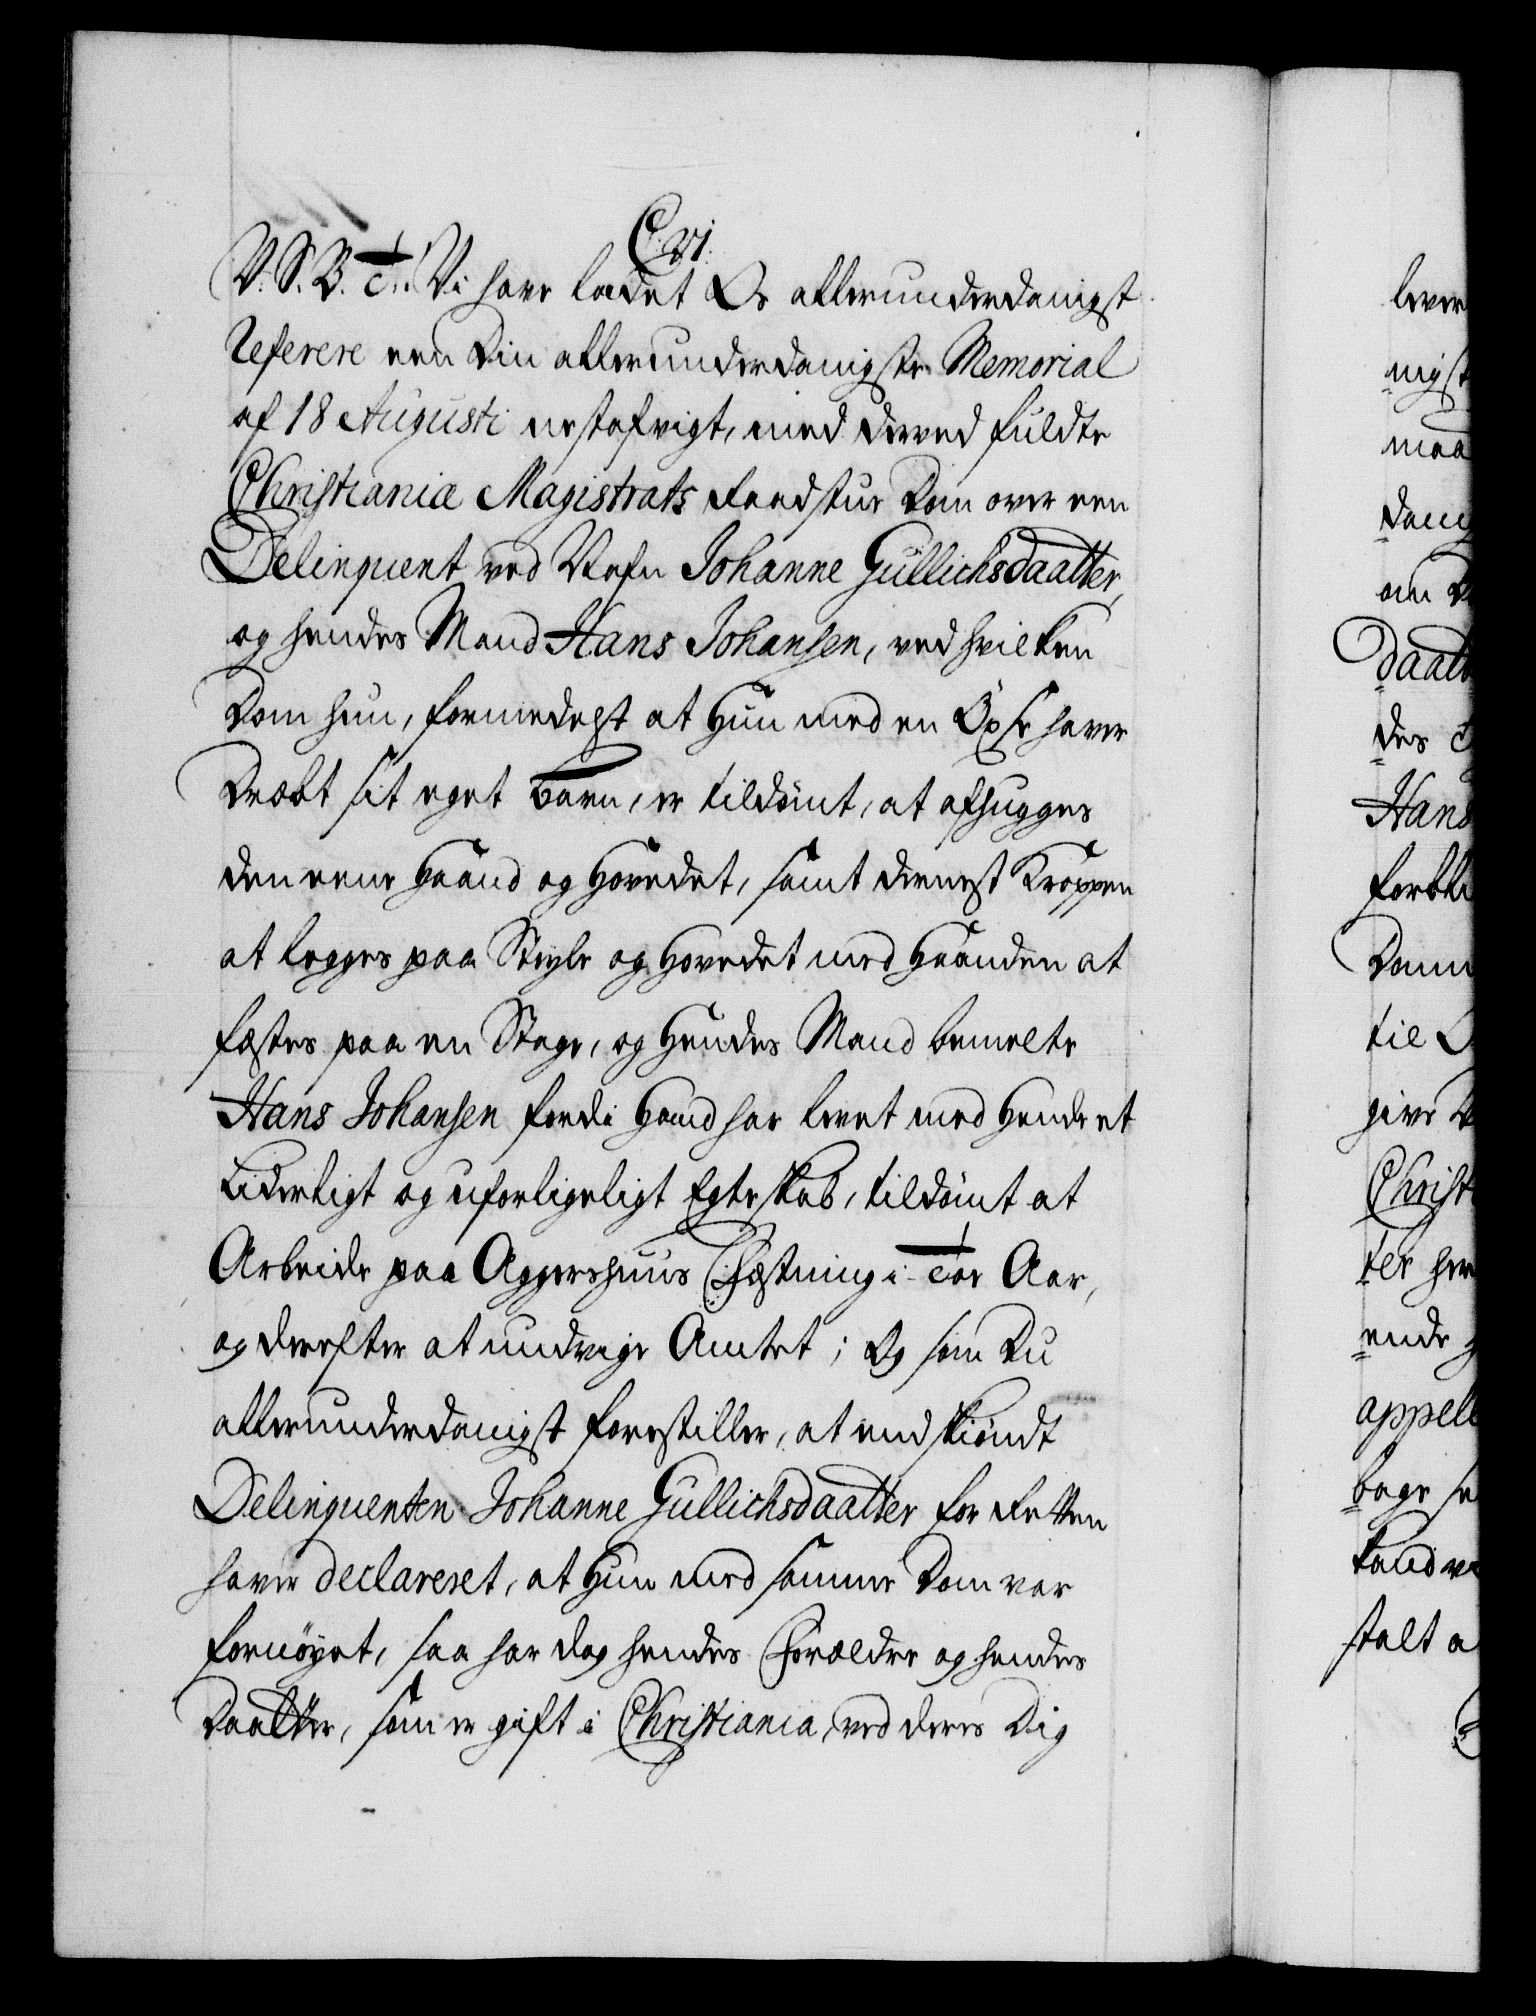 C: 6
V. S. B. T. Vi have ladet Os allerunderdanigst
Referere een Din allerunderdanigste Memorial
af 18 Augusti nestafvigt, med derved fuldte
Christianiæ Magistrats Raadstue Dom over een
Delinquent ved Nafn Johanne Gullichsdaatter,
og hendes Mand Hans Johansen, ved hvilken
Dom hun, formedelst at Hun med en Øxe haver
Dræbt sit eget Barn, er tildømt, at afhugges
den eene Haand og Hovedet, samt dernest Kroppen
at legges paa Steyle og Hovedet med Haanden at
fæstes paa en Stage, og Hendes Mand bemelte
Hans Johansen fordi Hand har levet med Hende et
Liderligt og uforligeligt Egteskab, tildømt at
Arbeide paa Aggershuus Fæstning i Toe Aar,
og derefter at undvige Amtet; Og som Du
allerunderdanigst forestiller, at endskiøndt
Delinquenten Johanne Gullichsdaatter for Retten
haver declareret, at Hun med samme Dom var
fornøyet, saa har dog hendes Forældre og hendes
Daatter, som er gift i Christiania, ved deres Dig
lever
nigst
maa
dani
om
daatt
des
Hans
forbl
Dom
til
give
Christ
ter her
ende
appell
bage
Land
stalt a